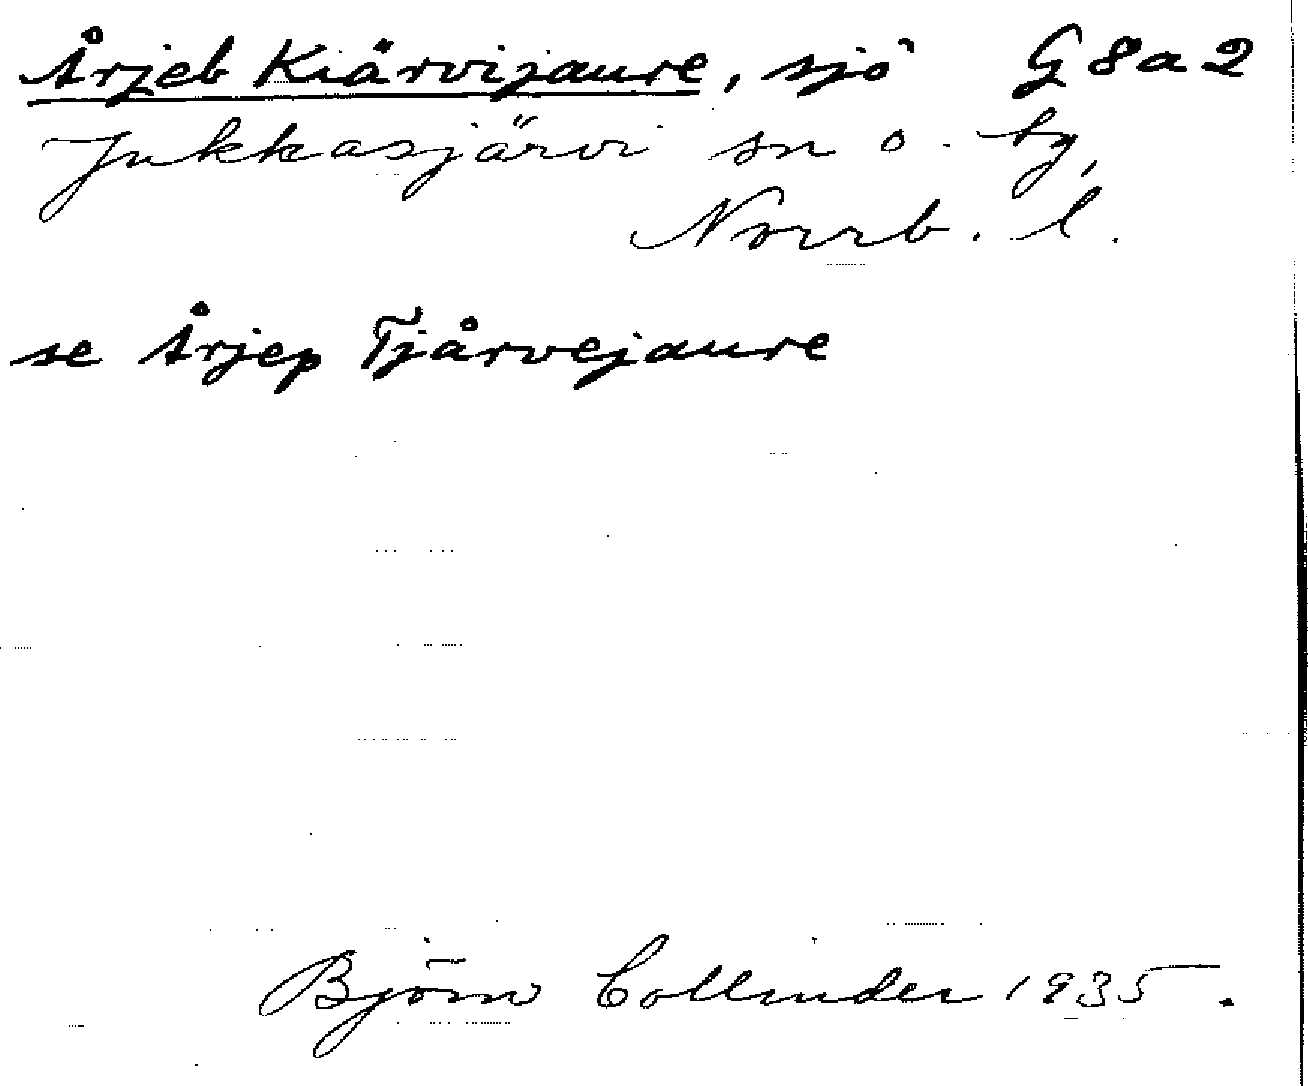 Årjeb Kiärvijaure, sjö G 8 a 2
Jukkasjärvi sn o. tg,
Norrb. l.
se Årjep Tjårvejaure
Björn Collinder 1935.